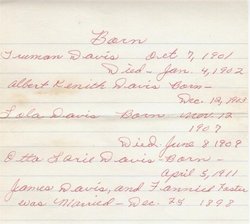 Born
Truman Davis Oct 7, 1901
Died - Jan. 4, 1902
Albert Kenith Davis Born -
Dec. 12,
Lola Davis - Born Nov. 12
1907
Died June 8 1908
Otta Larie Davis - Born -
April 5, 1911
James Davis, and Fannie Foster
was Married - Dec. 25, 1898